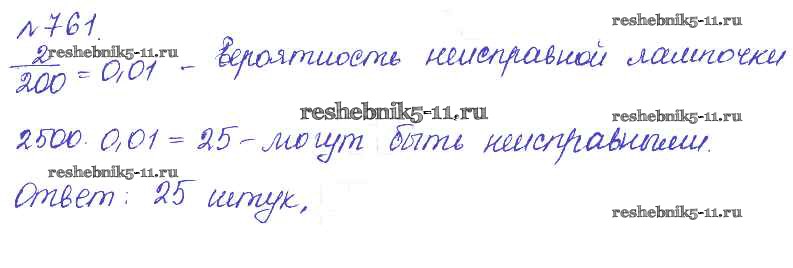 №761.
2/200 = 0,01 - Вероятность неисправной лампочки
2500 · 0,01 = 25 - могут быть неисправными.
Ответ: 25 штук.
reshebnik5-11.ru
reshebnik5-11.ru
reshebnik5-11.ru
reshebnik5-11.ru
reshebnik5-11.ru
reshebnik5-11.ru
reshebnik5-11.ru